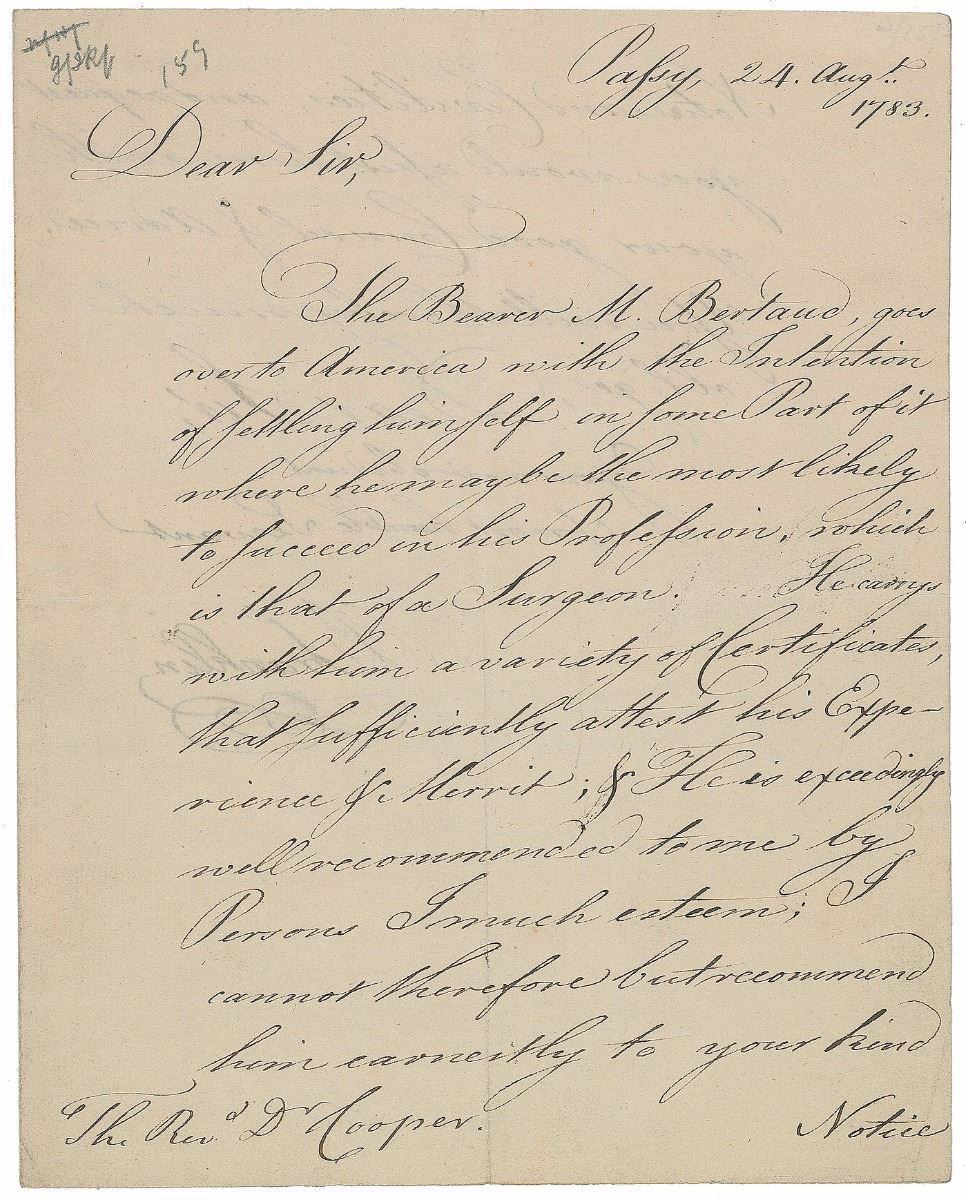 159
Passy, 24. Augt.
1783.
Dear Sir,
The Bearer M. Bertaud, goes
over to America with the Intention
of settling himself in some Part of it
where he may be the most likely
to succeed in his Profession, which
is that of a Surgeon. He carrys
with him a variety of Certificates,
that sufficiently attest his Expe-
rience & Merrit; & He is exceedingly
well recommended to me by
Persons I much esteem; I
cannot therefore but recommend
him earnestly to your kind
The Revd. Dr Cooper.
Notice